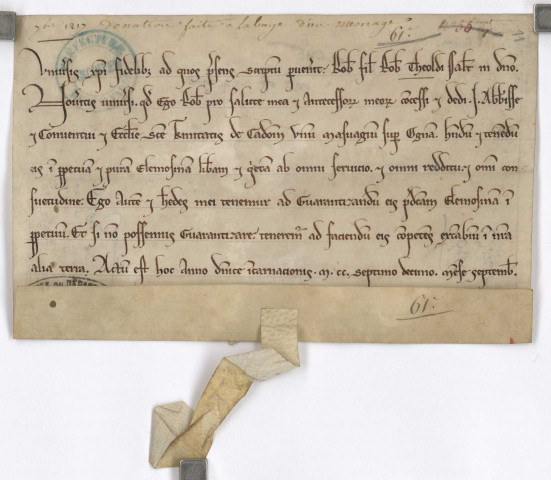 7bre 1217 Donation faite a labaye d'une masnage
61:
Univsis xpi fidelibz ad quos psens scriptu pvenit. Rob fil Rob Theoldi salt in dno.
Novitis univsi qd Ego Rob pro salute mea i Antecessor meor concessi i dedi J. Abbisse
i Conventui i Ecclie Sce Trinitatis de Cadom Unu Masuagiu sup Ogna hndu i tenendu
eis i ppetua i pura Elemosina libam i qeta ab omni servicio i omni redditu i omni con
suetudine. Ego Aute i hedes mei tenemur ad Guarantizandu eis pdcam Elemosina i
ppetuu. Et si non possemus Guarantizare tenerem ad faciendu eis competes excabiu i nra
alia terra. Actu est hoc Anno dnice icarnacionis. M. CC. Septimo decimo. Mese Septemb.
61: